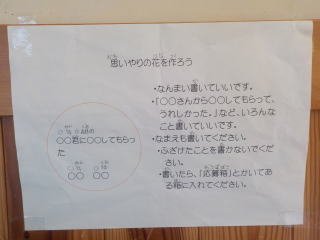 思いやりの花を作ろう
・なんまい書いていいです。
・「〇〇さんから〇〇してもらって、
うれしかった。」など、いろんな
こと書いていいです。
・なまえも書いてください。
・ふざけたことを書かないでくだ
さい。
・書いたら、「応募箱」とかいてあ
る箱に入れてください。
〇〇君に〇〇してもらっ
た
〇〇 〇〇